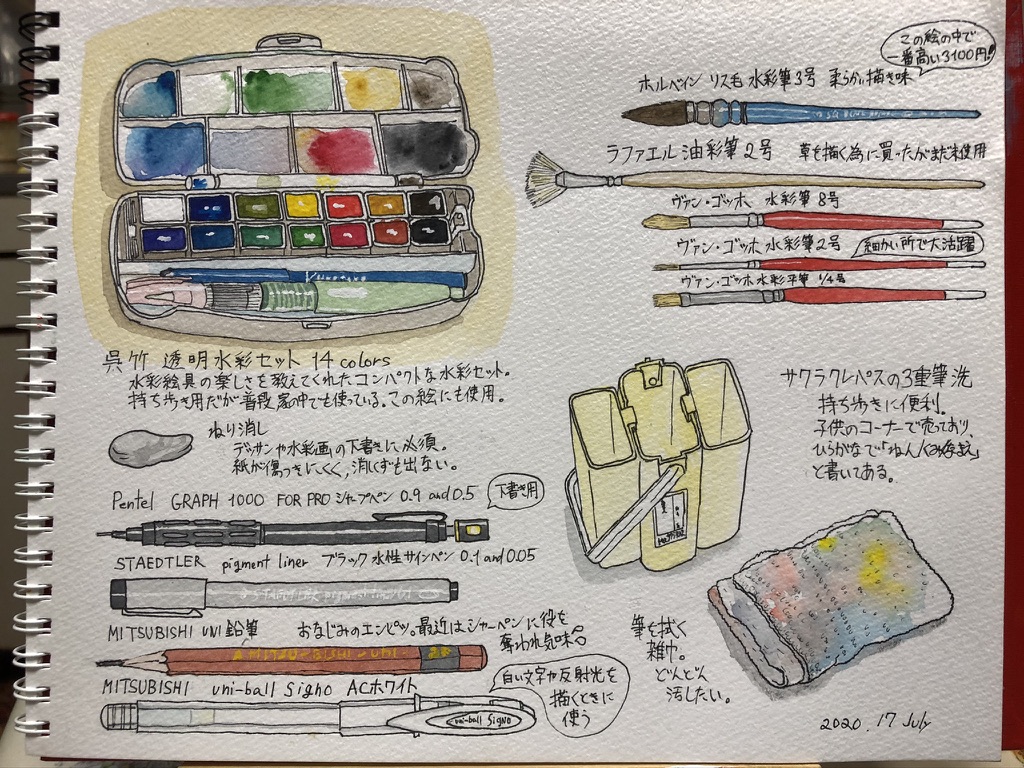 この絵の中で
一番高い3100円!
ホルベイン リス毛 水彩筆3号 柔らかい描き味
ラファエル 油彩筆2号 草を描く為に買ったがまだ未使用
ヴァン・ゴッホ 水彩筆8号
ヴァン・ゴッホ 水彩筆2号 細かい所で大活躍
ヴァン・ゴッホ 水彩平筆 1/4号
呉竹 透明水彩セット 14 colors
水彩絵具の楽しさを教えてくれたコンパクトな水彩セット。
持ち歩き用だが普段家の中でも使っている。この絵にも使用。
ねり消し
デッサンや水彩画の下書きに必須。
紙が傷つきにくく,消しくずも出ない。
Pentel GRAPH 1000 FOR PRO シャープペン 0.9 and 0.5
下書き用
STAEDTLER pigment liner ブラック 水性サインペン 0.1 and 0.05
STAEDTLER pigment liner 01
MITSUBISHI UNI 鉛筆 おなじみのエンピツ。最近はシャーペンに役を
奪われ気味
MITSU-BISHI-UNI
MITSUBISHI uni-ball Signo ACホワイト
白い文字や反射光を
描くときに
使う
uni-ball Signo
サクラクレパスの3重筆洗
持ち歩きに便利.
子供のコーナーで売っており,
ひらがなで「ねん
と書いてある。
筆を拭く
雑巾。
どんどん
汚したい。
2020. 17 July